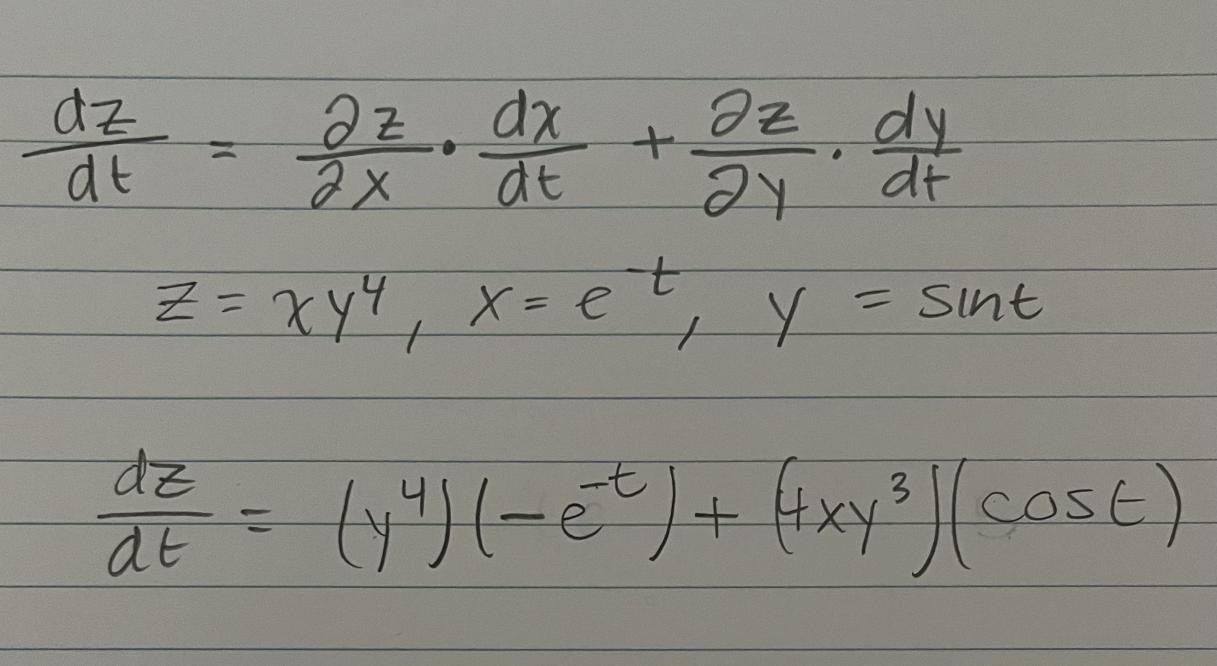 dz/dt = ∂z/∂x · dx/dt + ∂z/∂y · dy/dt
z = xy⁴, x = e⁻ᵗ, y = sint
dz/dt = (y⁴)(-e⁻ᵗ) + (4xy³)(cost)